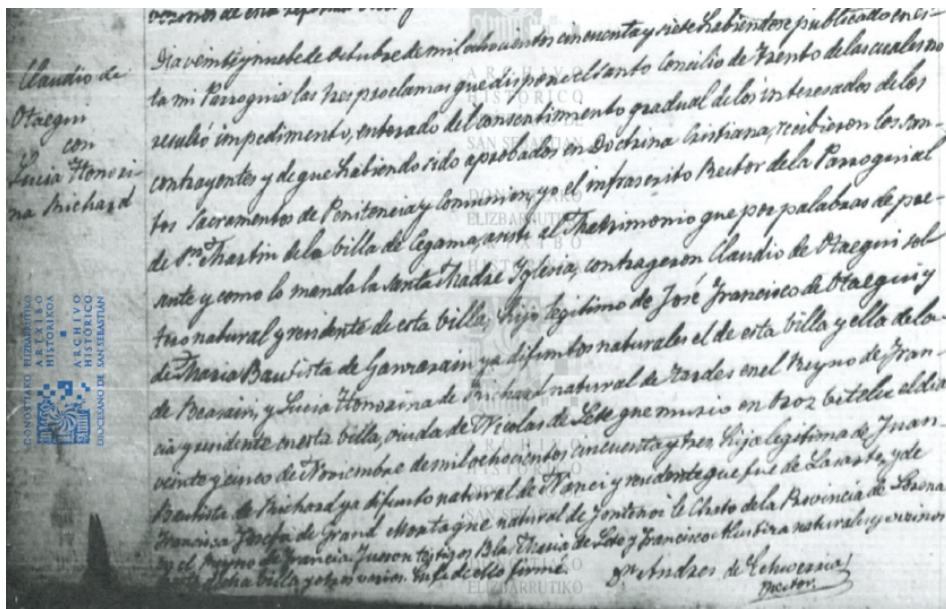 Claudio de
Otaegui
con
Lucia Honori-
na Richard
Dia veintiynuebe de Octubre de mil ochocientos cincuenta y siete habiendose publicado en es-
ta mi Parroquia las tres proclamas que dispone el Santo Concilio de Trento de las cuales no
resultó impedimento, enterado del consentimiento gradual de los interesados de los
contrayentes y de que habiendo sido aprobados en Doctrina Cristiana, recibieron los san-
tos Sacramentos de Penitencia y Comunion, yo el infrascrito Rector de la Parroquial
de Sn. Martin de la villa de Cegama, asisti al Matrimonio que por palabras de pre-
sente y como lo manda la Santa Madre Iglesia, contrageron Claudio de Otaegui sol-
tero natural y residente de esta villa, hijo legitimo de José Francisco de Otaegui y
de Maria Bautista de ya difuntos naturales el de esta villa y ella de la
de Beasain, y Lucia Honorina de Richard natural de en el Reyno de Fran-
cia y residente en esta villa, viuda de Nicolas de que murio en Oroz betelu el dia
veinte y cinco de Noviembre de mil ochocientos cincuenta y tres, hija legitima de Juan
Bautista de Richard ya difunto natural de Nanci y residente que fue de y de
Francisca Josefa de Grand Montagne natural de Fontenoi le Chato de la Provincia de Lorena
en el Reyno de Francia. Fueron testigos Blas Maria de y Francisco naturales y vecinos
de esta dicha villa y otros varios. En fe de ello firmé.
Dn. Andres de Echeverria
Rector.
DONOSTIAKO ELIZBARRUTIKO
ARTXIBO
HISTORIKOA
ARCHIVO
HISTÓRICO
DIOCESANO DE SAN SEBASTIÁN